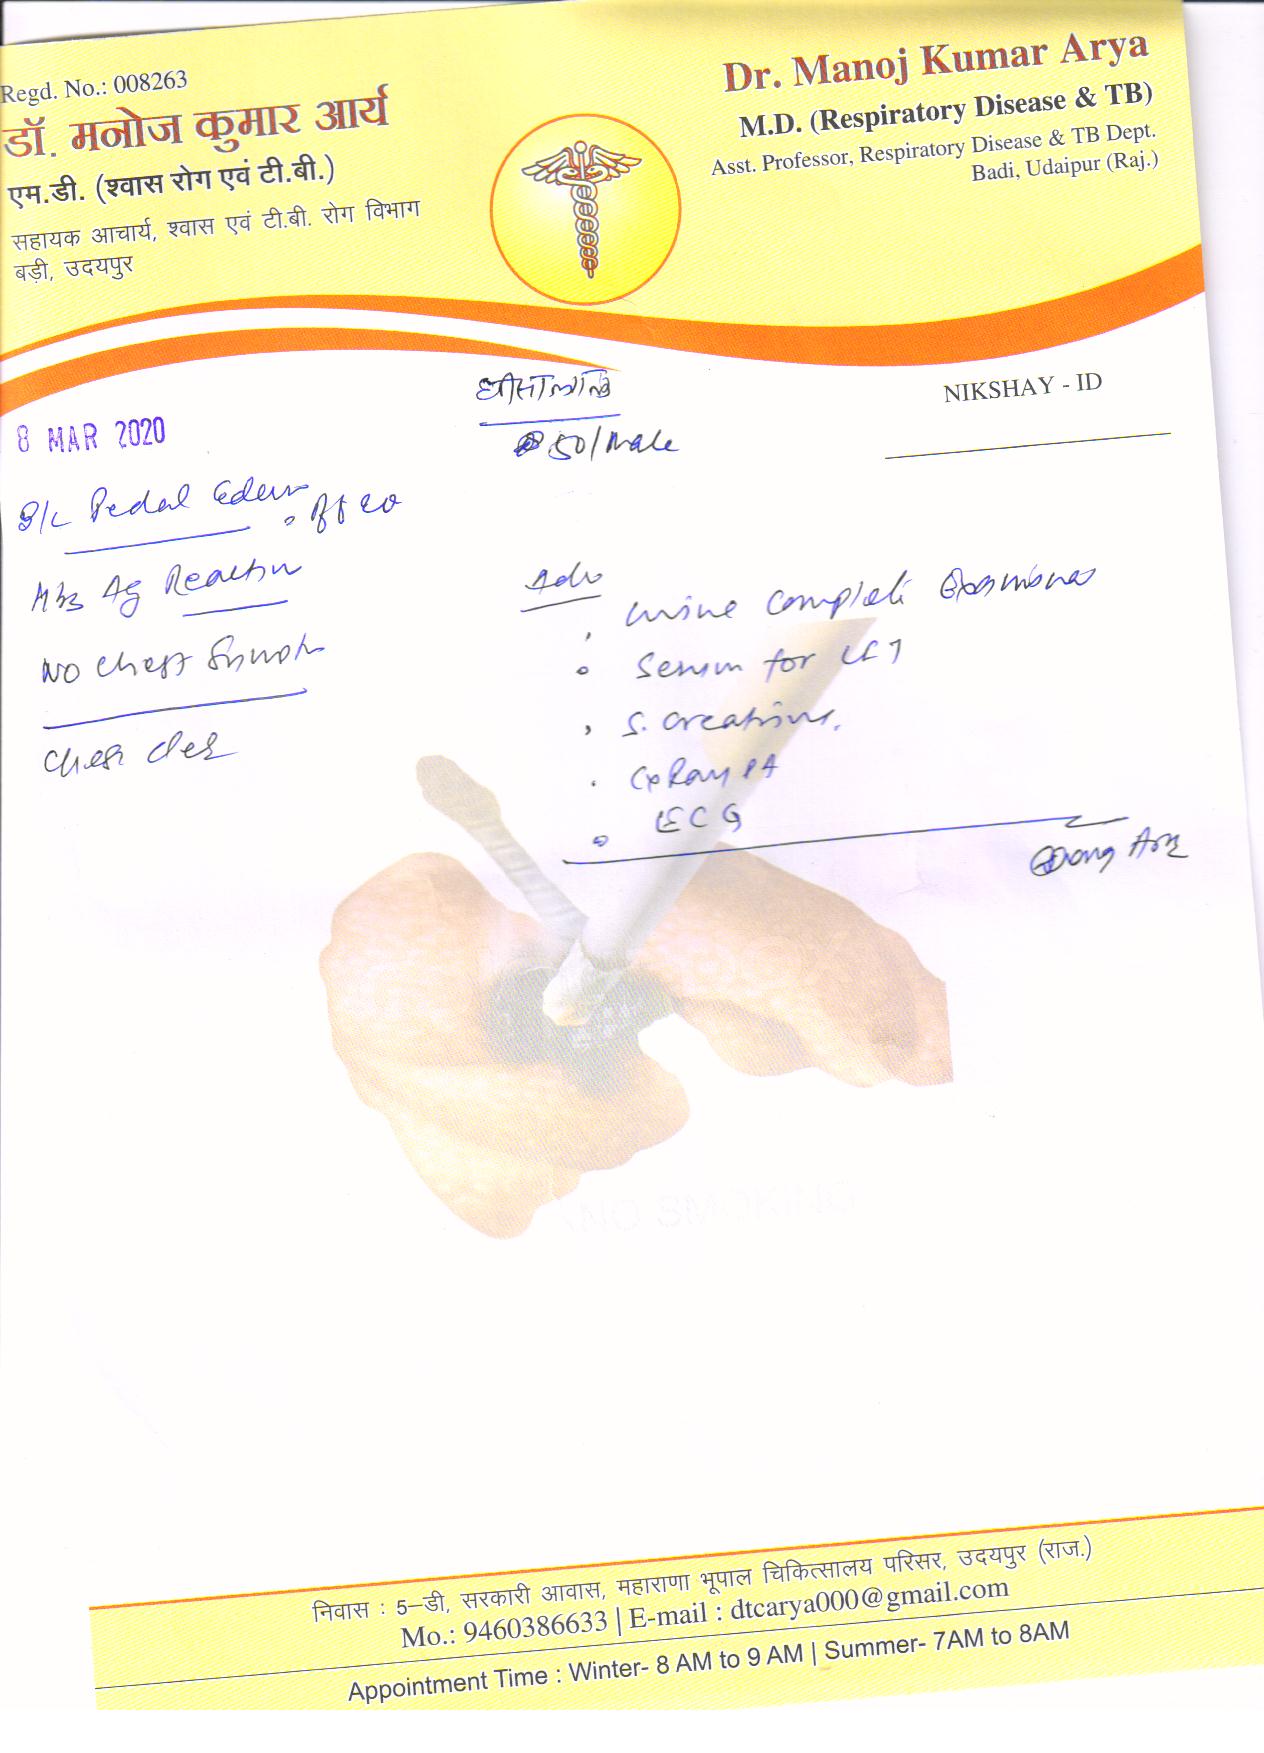 Regd. No.: 008263
डॉ. मनोज कुमार आर्य
एम.डी. (श्वास रोग एवं टी.बी.)
सहायक आचार्य, श्वास एवं टी.बी. रोग विभाग
बड़ी, उदयपुर
Dr. Manoj Kumar Arya
M.D. (Respiratory Disease & TB)
Asst. Professor, Respiratory Disease & TB Dept.
Badi, Udaipur (Raj.)
NIKSHAY - ID
8 MAR 2020
50/Male
B/L Pedal Edem
Hbs Ag Reactiv
NO Chest
Chest
Adv
urine complete
Serum for LFT
S. Creatinine.
CxRay PA
ECG
निवास : 5–डी, सरकारी आवास, महाराणा भूपाल चिकित्सालय परिसर, उदयपुर (राज.)
Mo.: 9460386633 | E-mail : dtcarya000@gmail.com
Appointment Time : Winter- 8 AM to 9 AM | Summer- 7AM to 8AM